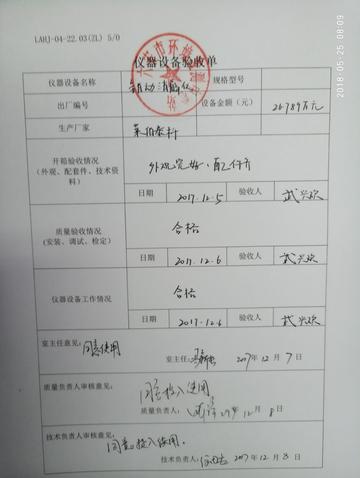 LAHJ-04-22.03(ZL) 5/0
仪器设备验收单
仪器设备名称 规格型号
出厂编号 设备金额（元） 26.789万元
生产厂家 莱伯泰科
开箱验收情况
（外观、配套件、技术资料）
外观完好，配件齐
日期 2017.12.5 验收人 武兴欢
质量验收情况
（安装、调试、检定）
合格
日期 2017.12.6 验收人 武兴欢
仪器设备工作情况
合格
日期 2017.12.6 验收人 武兴欢
室主任意见：
同意使用
室主任： 2017年12月7日
质量负责人审核意见：
同意投入使用
质量负责人： 12月8日
技术负责人审核意见：
同意投入使用。
技术负责人： 2017年12月8日
2018-05-25 08:09